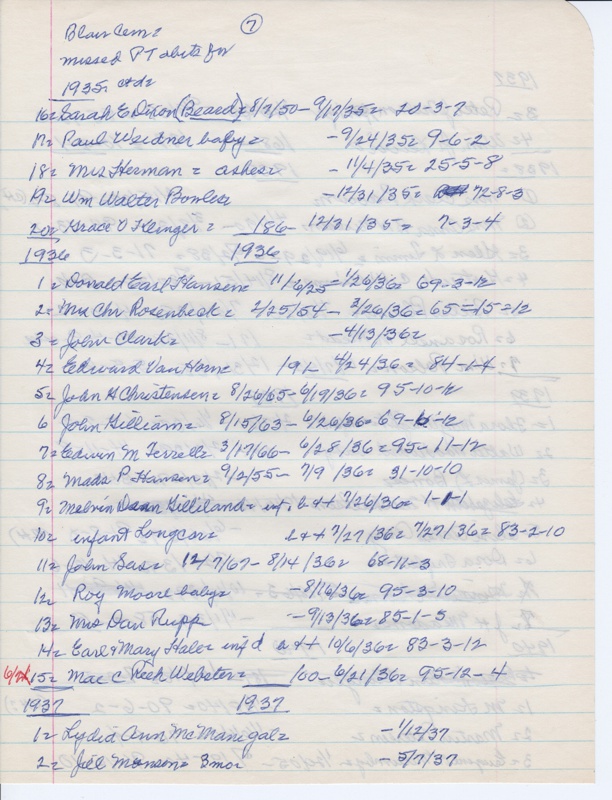 7
Blair Cem=
missed PT obits for
1935 ctd=
16= Sarah E Dixon (Beard)= 8/2/50 - 9/17/35= 20-3-7
17= Paul Weidner baby= - 9/24/35= 9-6-2
18= Mrs Herman = ashes= - 11/4/35= 25-5-8
19= Wm Walter Bowles= - 12/31/35= 72-8-3
20= Grace O Klinger = 186 - 12/31/35= 7-3-4
1936 1936
1= Donald Earl Hansen= 11/6/25= 1/26/36= 69-3-12
2= Mrs Chr Rosenbeck = 2/25/54 - 3/26/36= 65=15=12
3= John Clark= - 4/13/36=
4= Edward Van Horn= 191- 4/24/36= 84-1-4
5= John H Christensen= 8/26/65- 6/19/36= 95-10-12
6 John Gilliam= 8/15/63- 6/26/36= 69-6-12
7= Edwin M Ferrell= 3/17/66- 6/28/36= 95-11-12
8= Mads P Hansen= 9/2/55- 7/9/36= 31-10-10
9= Melvin Dean Gilliland= inf. b+d 7/26/36= 1-1-1
10= infant Longcor= b+d 7/27/36= 7/27/36= 83-2-10
11= John Sas= 12/7/67- 8/14/36= 68-11-3
12 Roy Moore baby= - 8/16/36= 95-3-10
13= Mrs Dan Rupp - 9/13/36= 85-1-5
14= Earl & Mary Hale= inf d b++ 10/6/36= 83-3-12
6/21 15= Mac C Webster= 100- 6/21/36= 95-12-4
1937 1937
1= Lydia Ann McManigal= - 1/12/37
2= Jill Monson= 3mo= - 5/7/37